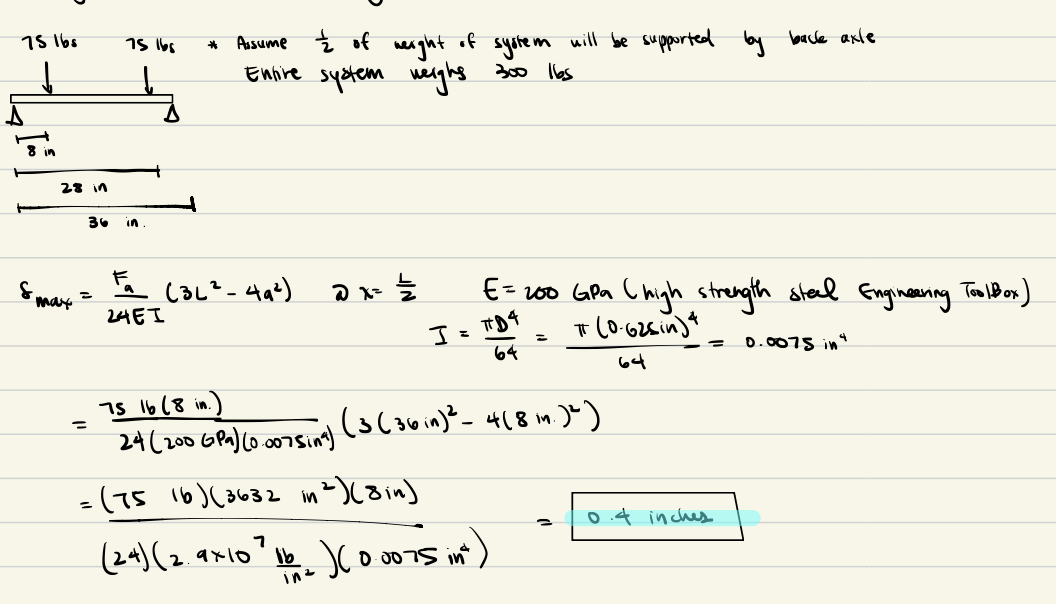 75 lbs 75 lbs * Assume 1/2 of weight of system will be supported by back axle
Entire system weighs 300 lbs
8 in
28 in
36 in.
δmax = Fa/24EI (3L² - 4a²) @ x = L/2 E = 200 GPa (high strength steel Engineering ToolBox)
I = πD⁴/64 = π(0.625in)⁴/64 = 0.0075 in⁴
= 75 lb(8 in.)/24(200 GPa)(0.0075in⁴) (3(36in)² - 4(8 in.)²)
= (75 lb)(3632 in²)(8in)/(24)(2.9×10⁷ lb/in²)(0.0075 in⁴) = 0.4 inches